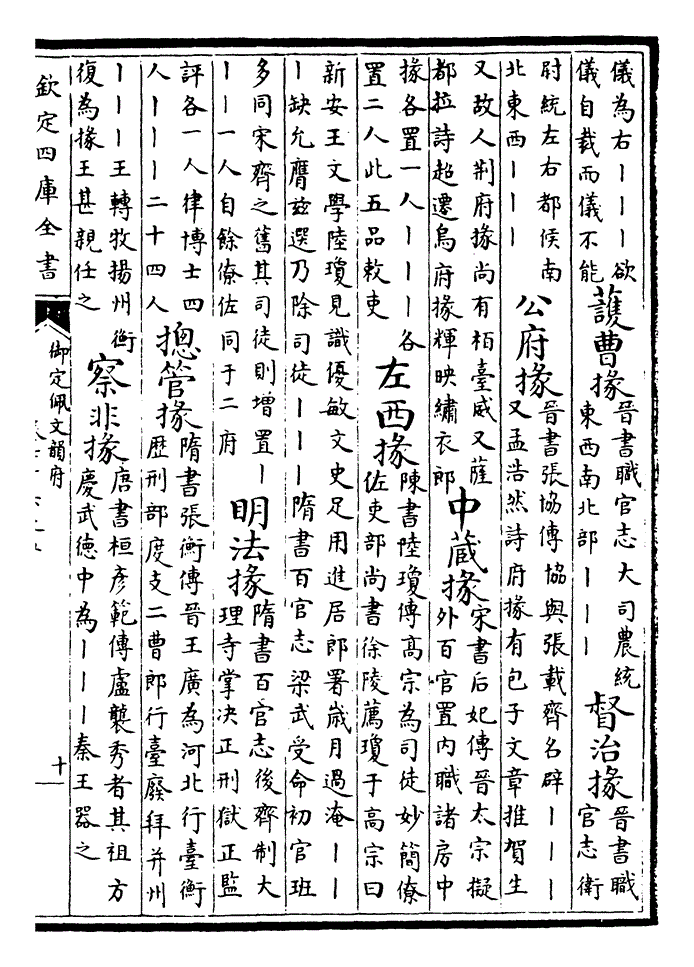 儀為右丨丨丨欲
儀自裁而儀不能
䕶曹掾
晉書職官志大司農統
東西南北部丨丨丨
督治掾
晉書職
官志衛
尉統左右都候南
北東西丨丨丨
公府掾
晉書張協傳協與張載齊名辟丨丨丨
又孟浩然詩府掾有包子文章推賀生
又故人荆府掾尚有栢臺威又薩
都拉詩超遷烏府掾輝映繡衣郎
中藏掾
宋書后妃傳晉太宗擬
外百官置内職諸房中
掾各置一人丨丨丨各
置二人此五品敕吏
左西掾
陳書陸瓊傳髙宗為司徒妙簡僚
佐吏部尚書徐陵薦瓊于高宗曰
新安王文學陸瓊見識優敏文史足用進居郎署嵗月過淹丨丨
丨缺允膺兹選乃除司徒丨丨丨隋書百官志梁武受命初官班
多同宋齊之舊其司徒則增置丨
丨丨一人自餘僚佐同于二府
明法掾
隋書百官志後齊制大
理寺掌决正刑獄正監
評各一人律博士四
人丨丨丨二十四人
摠管掾
隋書張衡傳晉王廣為河北行臺衡
歴刑部度支二曹郎行臺廢拜并州
丨丨丨王轉牧揚州衡
復為掾王甚親任之
察非掾
唐書桓彦範傳盧襲秀者其祖方
慶武德中為丨丨丨秦王器之
欽定四庫全書
御定佩文韻府
十